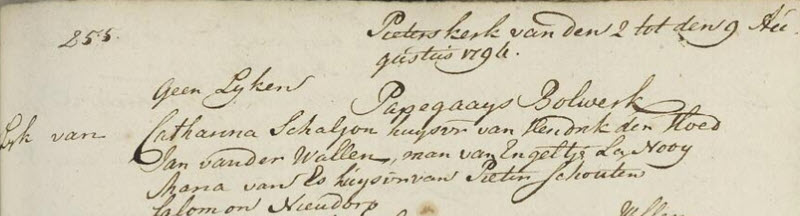 255.
Pieterskerk van den 2 tot den 9 Au-
gustus 1794.
Geen Lyken
Papegaays Bolwerk
Lyk van Catharina Schaljon huysvr van Hendrik den Hoed
Jan vander Wallen, man van Engeltje La Nooy
Maria van Es huysvr van Pieter Schouten
Salomon Nieudorp